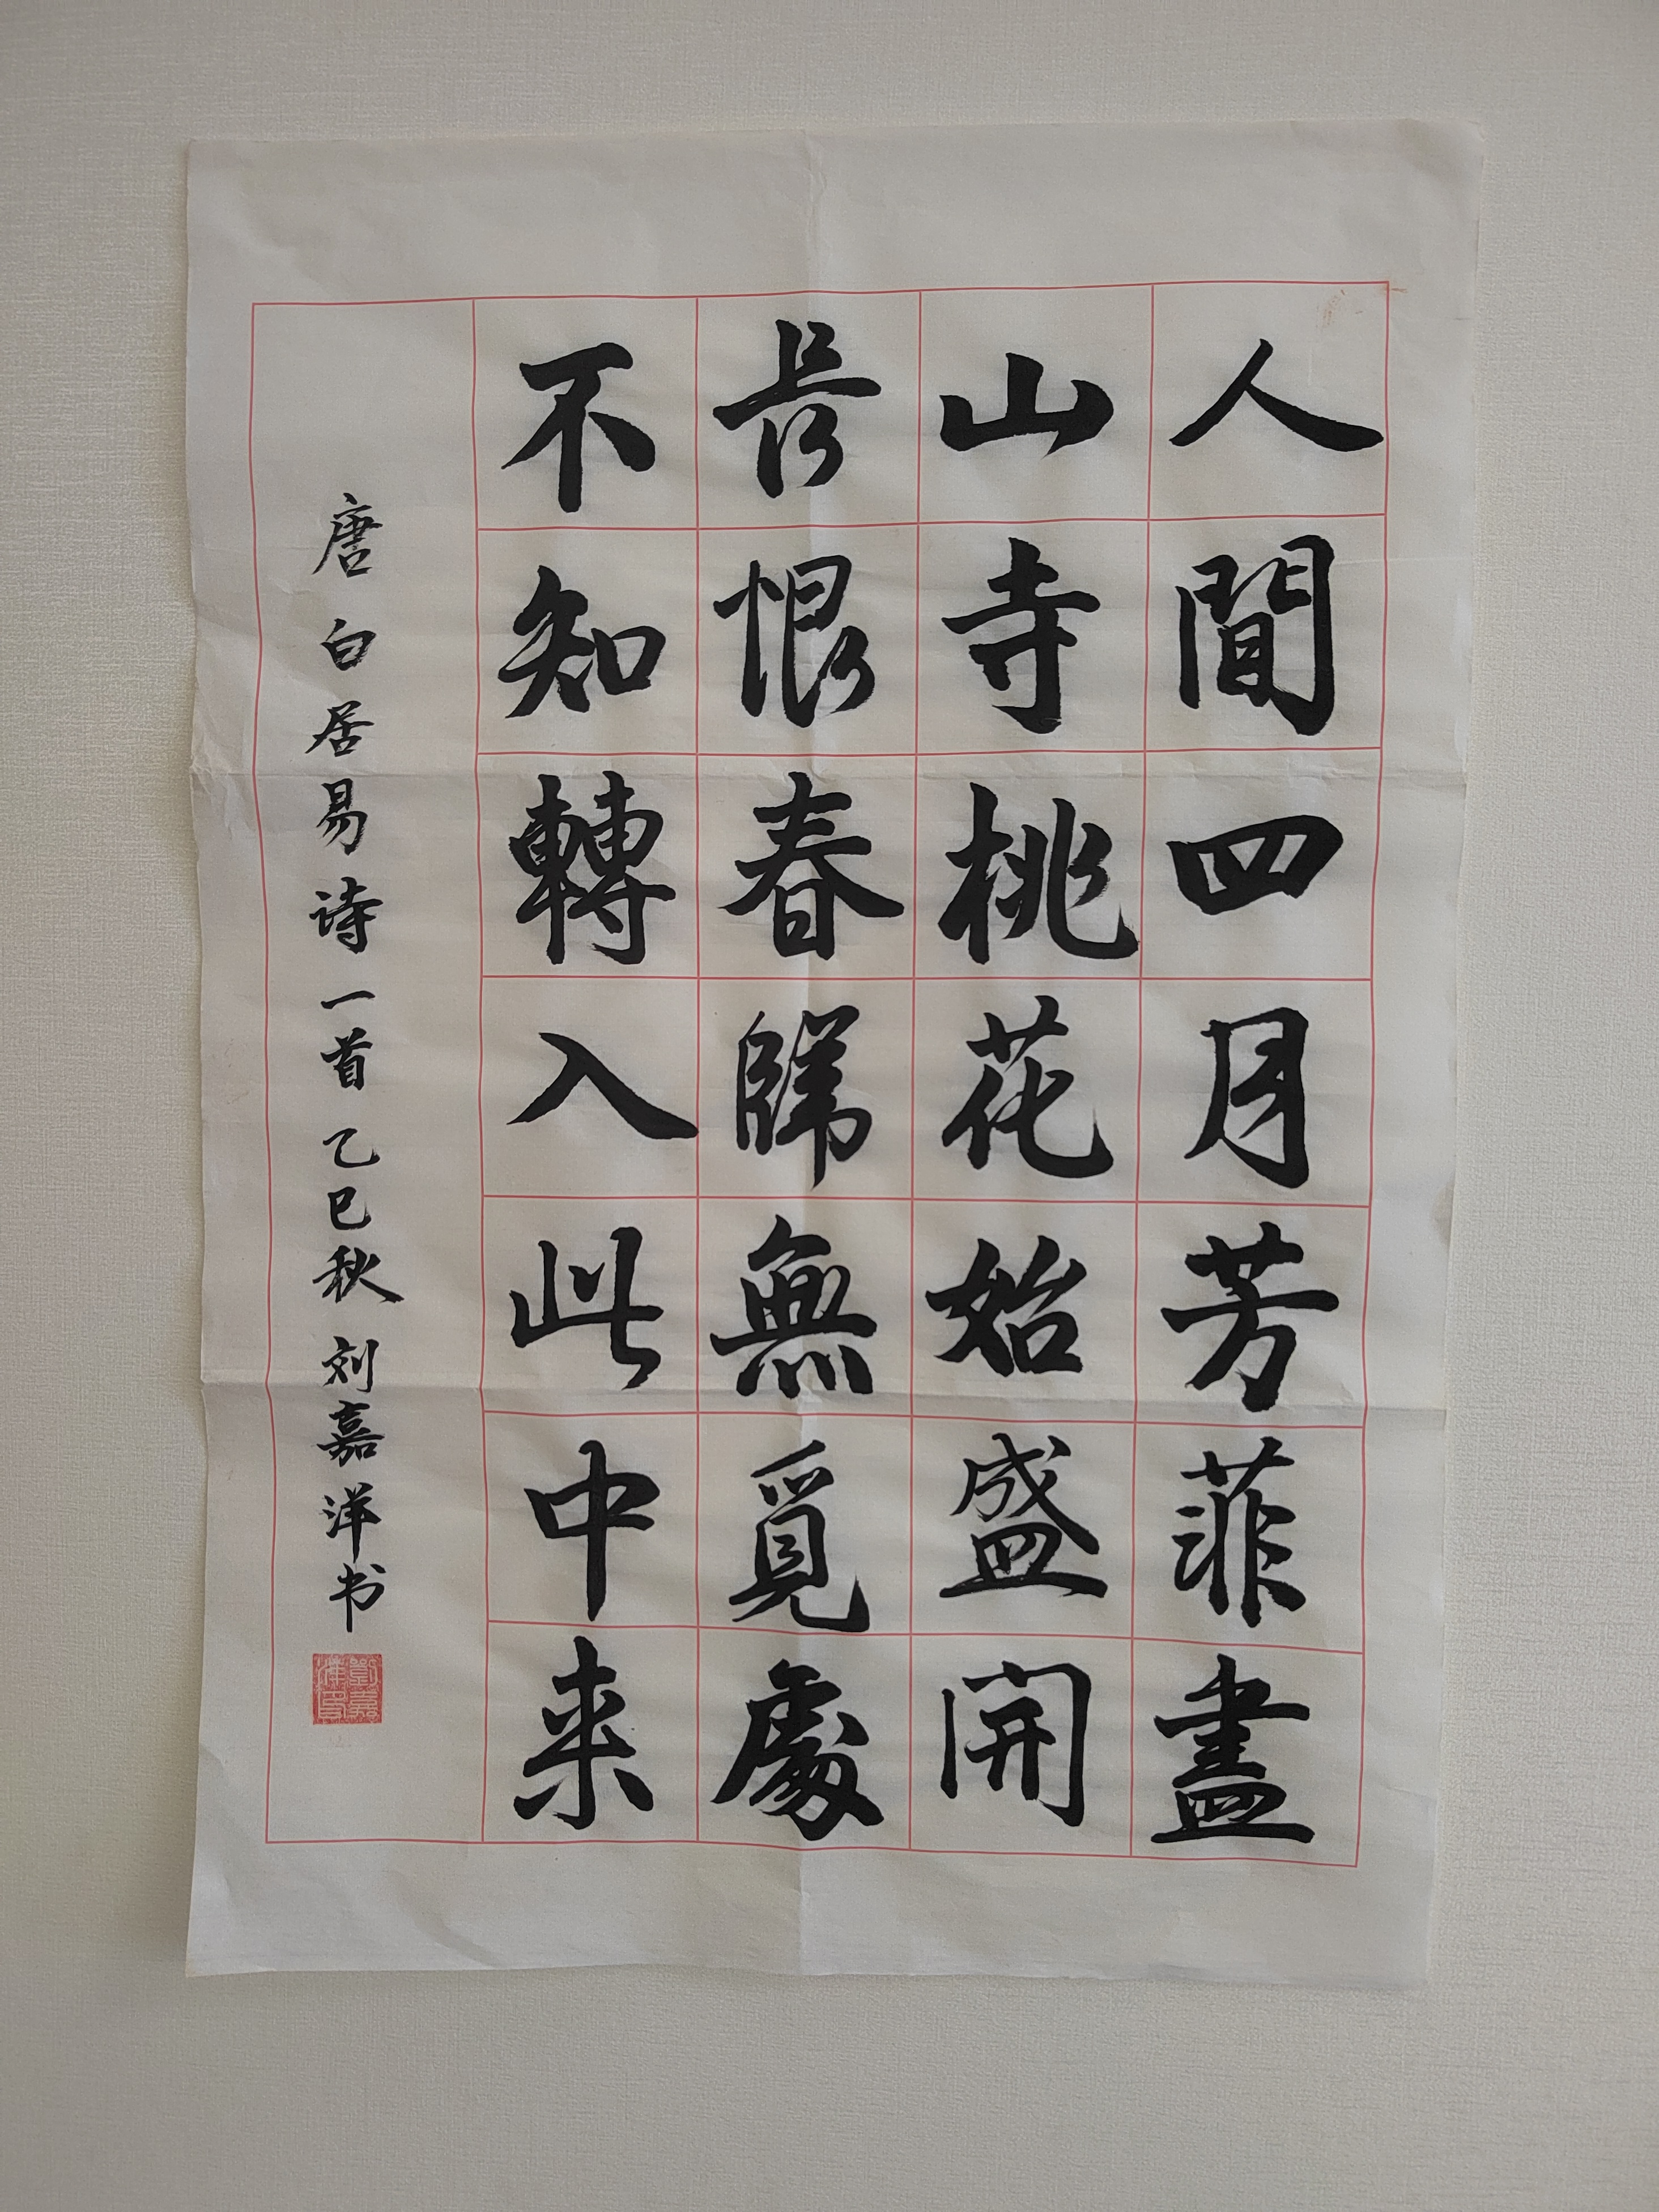 人間四月芳菲盡
山寺桃花始盛開
長恨春歸無覓處
不知轉入此中来
唐白居易诗一首乙巳秋刘嘉洋书
劉嘉洋印